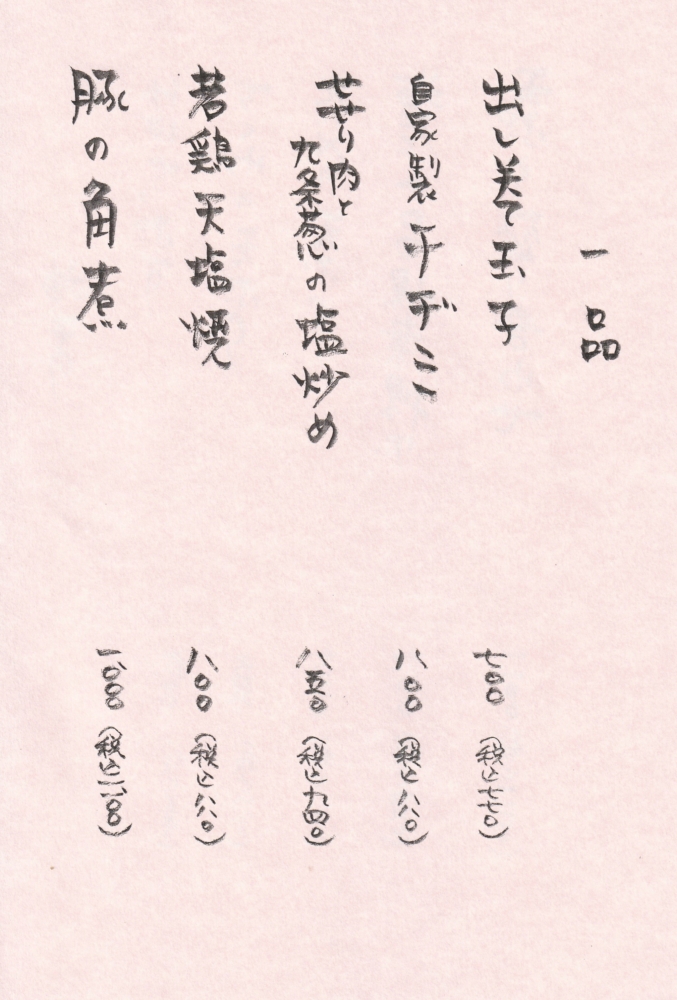 一品
出し巻て玉子
七〇〇（税込七七〇）
自家製チヂミ
八〇〇（税込八八〇）
せせり肉と
九条葱の塩炒め
八五〇（税込九四〇）
若鶏天塩焼
八〇〇（税込八八〇）
豚の角煮
一、〇〇〇（税込一、一〇〇）